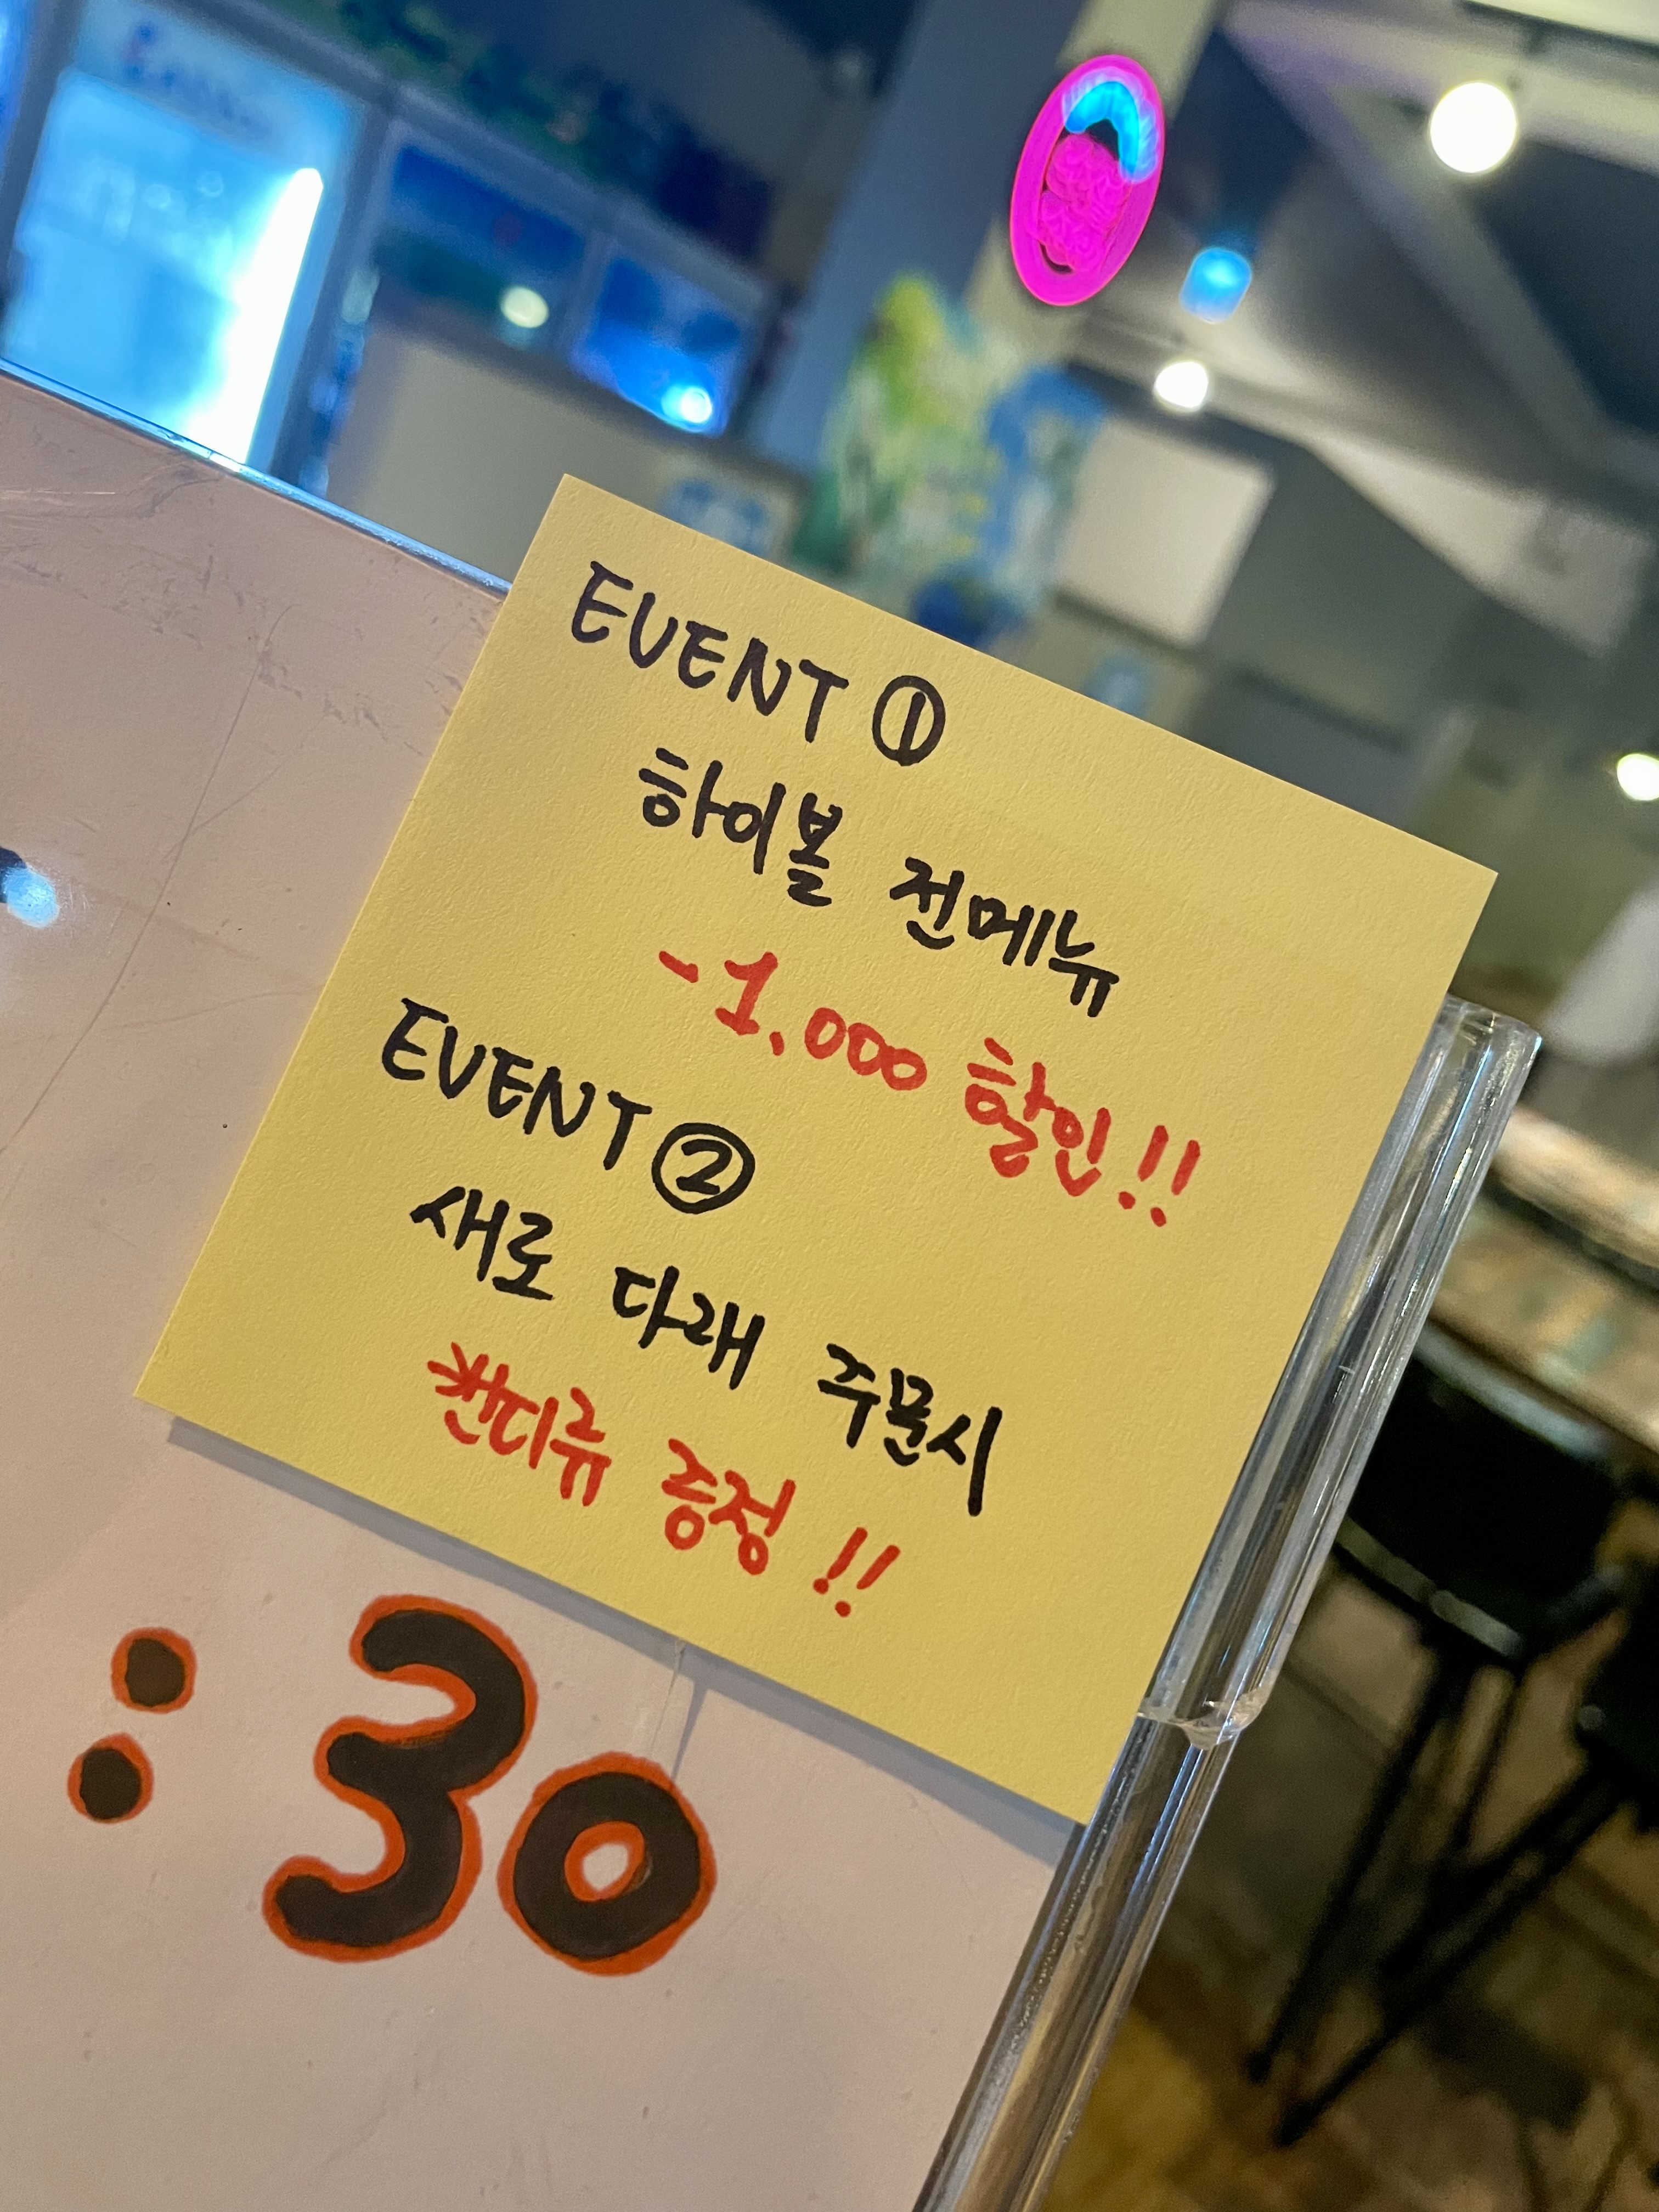 EVENT ①
하이볼 전메뉴
-1,000 할인!!
EVENT ②
새로 다래 주문시
캔디류 증정!!
:30